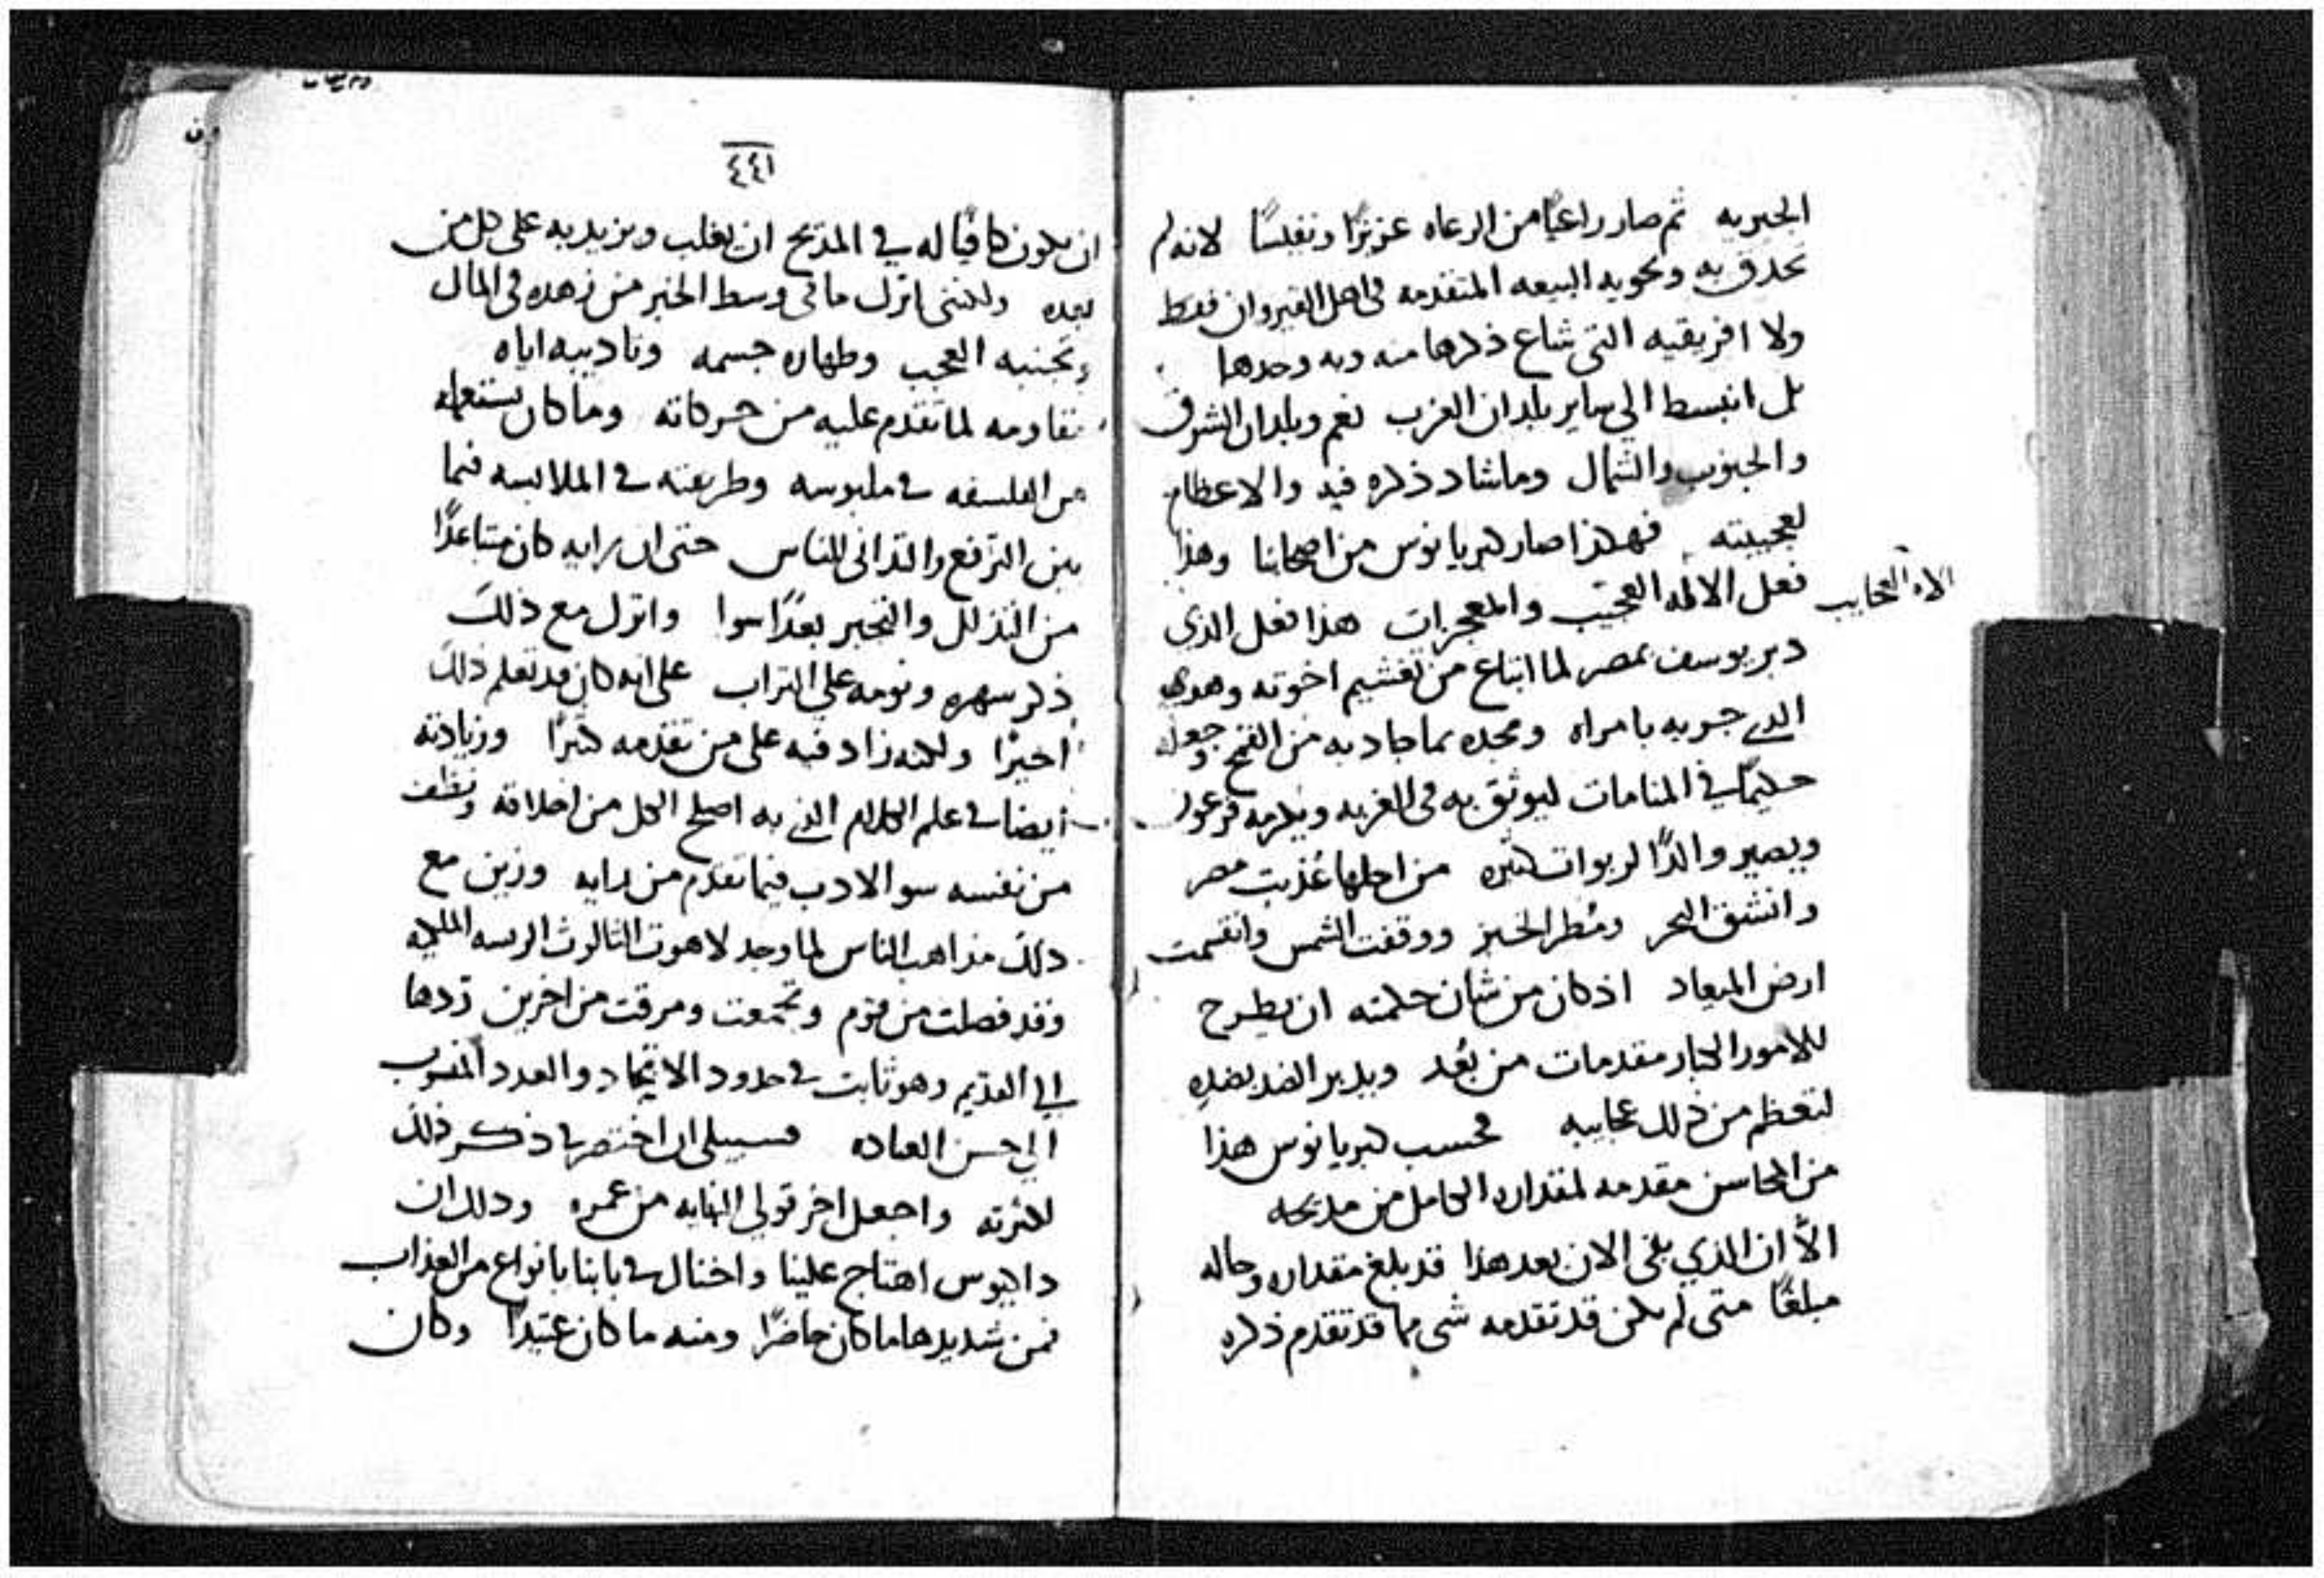 الحبريه ثم صار راعيًا من الرعاه عزيزًا ونفيسًا لانه لم
تحدق به وتحويه البيعه المتقدمه في اهل القيروان فقط
ولا افريقيه التي شاع ذكرها منه وبه وحدها
بل انبسط الي ساير بلدان الغرب نعم وبلدان الشرق
والجنوب والشمال وماشاد ذكره فيه والاعظام
لعجيبته فهكذا صار كبريانوس من اصحابنا وهذا
فعل الاله العجيب والمعجزات هذا فعل الذي
الاه العجايب
دبر يوسف بمصر لما ابتاع من تغشيم اخوته وهو
الذي جربه بامراه ومجده بما جاد به من القمح وجعله
حكيمًا في المنامات ليوثق به في الغربه ويكرمه فرعون
ويصير والدًا لربوات كثيره من اجلها عُذبت مصر
وانشق البحر ومُطر الخبز ووقفت الشمس وانقسمت
ارض الميعاد اذ كان من شان حكمته ان يطرح
للامور الكبار مقدمات من بُعد ويدبر الضد بضده
لتعظم من ذلك عجايبه فحسب كبريانوس هذا
من المحاسن مقدمه لمقداره الكامل من مديحه
الاّ ان الذي بقي الان بعد هذا قد بلغ مقداره وحاله
مبلغًا متي لم يكن قد تقدمه شي مما قد تقدم ذكره
٤٤١
ان يكون كافيًا له في المديح ان يغلب ويزيد به علي كل من
بعده ولكنني اترك ما في وسط الخبر من زهده في المال
وتجنبه العجب وطهاره جسمه وتاديبه اياه
مقاومه لما تقدم عليه من حركاته وما كان يستعمله
من الفلسفه في ملبوسه وطريقته في الملابسه فيما
بين الترفع والتداني للناس حتي ان رايه كان متباعدًا
من التذلل والتجبر بعدًا سوا واترك مع ذلك
ذكر سهره ونومه علي التراب علي انه كان قد تعلم ذلك
اخيرًا ولكنه زاد فيه علي من تقدمه كثيرًا وزيادته
ايضا في علم الكلام الذي به اصلح الكل من اخلاقه ونظف
من نفسه سو الادب فيما تقدم من رايه وزين مع
ذلك مذاهب الناس لما وجد لاهوت الثالوث الرسه الملكيه
وقد فصلت من قوم وتجمعت ومرقت من اخرين تردها
الي القديم وهو ثابت في حدود الاتحاد والعدد المنسوب
الي حسن العباده فسبيلي ان اختصر في ذكر ذلك
لكثرته واجعل اخر قولي النهايه من عمره وذلك ان
داكيوس اهتاج علينا واختال في بابنا بانواع من العذاب
فمن شديدها ما كان حاضرًا ومنه ما كان عتيدًا وكان